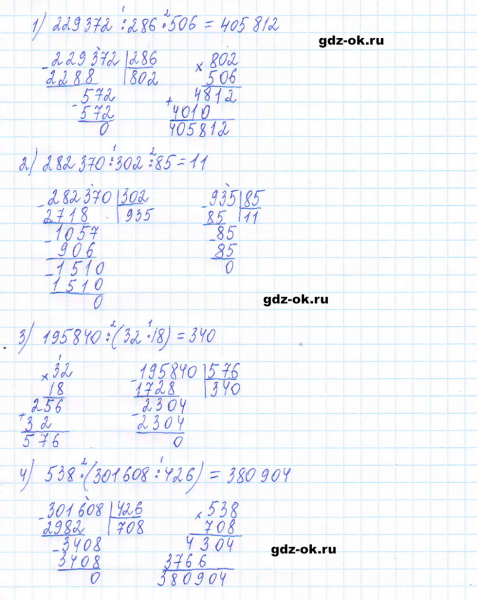 1) 229372 : 286 · 506 = 405812
gdz-ok.ru
- 229372 | 286
2288 | 802
- 572
572
0
× 802
506
+ 4812
4010
405812
2) 282370 : 302 : 85 = 11
- 282370 | 302
2718 | 935
- 1057
906
- 1510
1510
0
- 935 | 85
85 | 11
- 85
85
0
gdz-ok.ru
3) 195840 : (32 · 18) = 340
× 32
18
+ 256
32
576
- 195840 | 576
1728 | 340
- 2304
2304
0
4) 538 · (301608 : 426) = 380904
- 301608 | 426
2982 | 708
- 3408
3408
0
× 538
708
4304
3766
380904
gdz-ok.ru